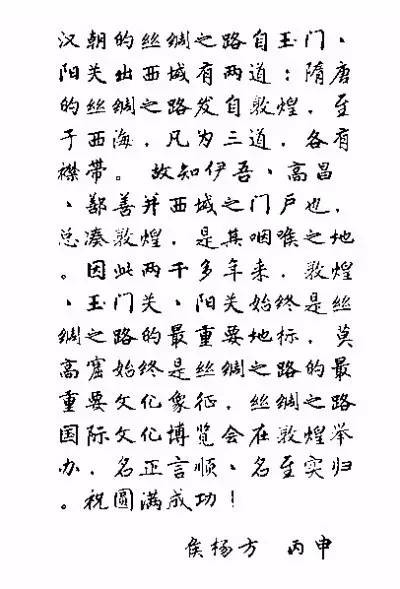 汉朝的丝绸之路自玉门、
阳关出西域有两道：隋唐
的丝绸之路发自敦煌，至
于西海，凡为三道，各有
襟带。故知伊吾、高昌
、鄯善并西域之门户也，
总凑敦煌，是其咽喉之地
。因此两千多年来，敦煌
、玉门关、阳关始终是丝
绸之路的最重要地标，莫
高窟始终是丝绸之路的最
重要文化象征，丝绸之路
国际文化博览会在敦煌举
办，名正言顺、名至实归
。祝圆满成功！
侯杨方 丙申